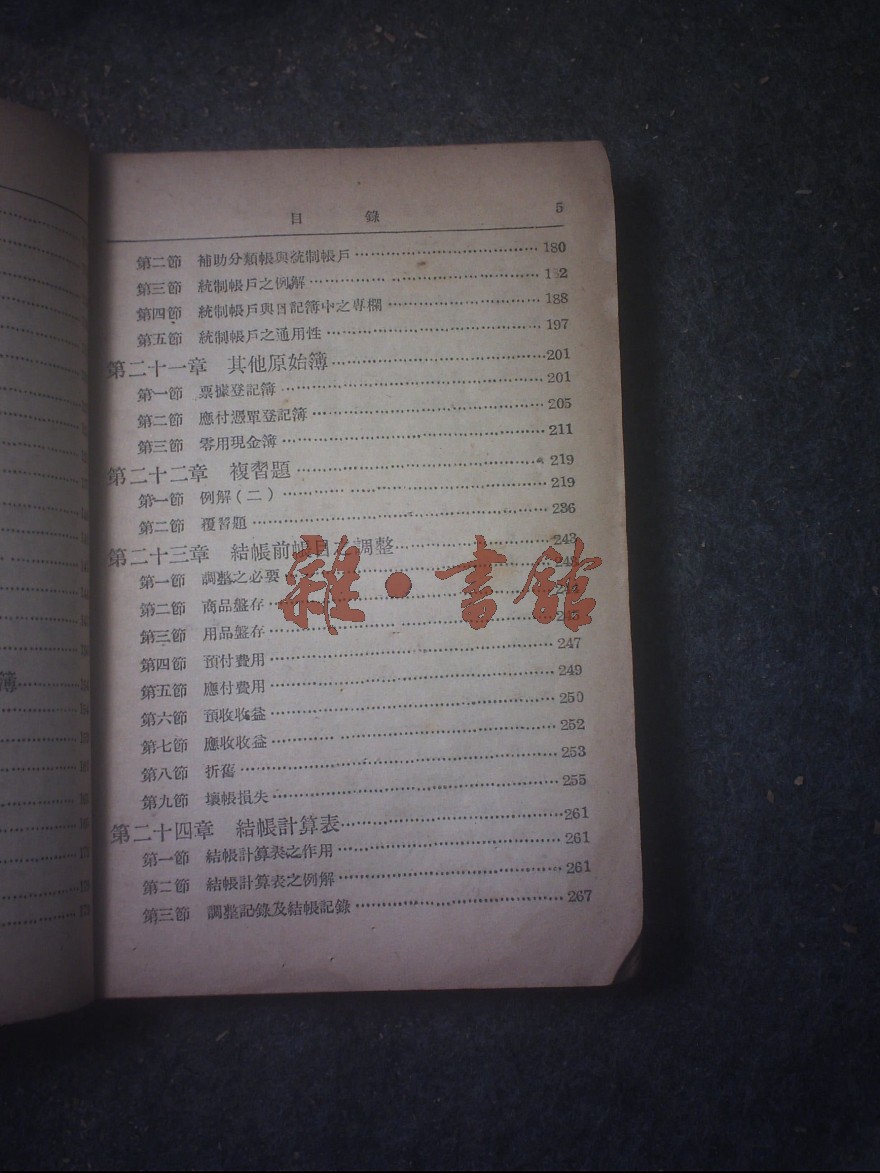 目 錄 5
第二節 補助分類帳與統制帳戶 180
第三節 統制帳戶之例解
第四節 統制帳戶與日記簿中之專欄 188
第五節 統制帳戶之通用性 197
第二十一章 其他原始簿 201
第一節 票據登記簿 201
第二節 應付憑單登記簿 205
第三節 零用現金簿 211
第二十二章 複習題 219
第一節 例解(二) 219
第二節 覆習題 236
第二十三章 結帳前帳目之調整 243
第一節 調整之必要 243
第二節 商品盤存 244
第三節 用品盤存 245
第四節 預付費用 247
第五節 應付費用 249
第六節 預收收益 250
第七節 應收收益 252
第八節 折舊 253
第九節 壞帳損失 255
第二十四章 結帳計算表 261
第一節 結帳計算表之作用 261
第二節 結帳計算表之例解 261
第三節 調整記錄及結帳記錄 267
雜·書館
簿